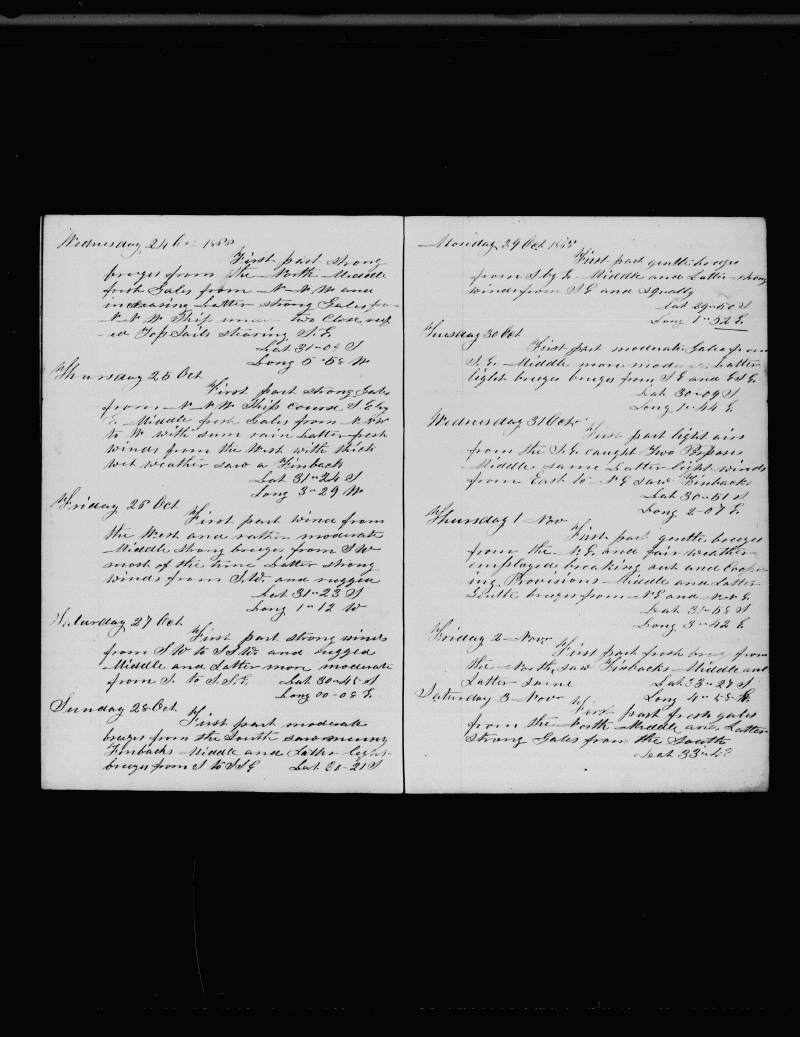 Wednesday 24 Oct 1855
First part strong
breezes from the North Middle
fresh Gales from N N W and
increasing Latter strong Gales fro
N N W Ship under two Close reef
ed Top Sails steering S. E
Lat 31-09 S
Long 5-58 W
Thursday 25 Oct
First part strong Gales
from N N W Ship course S E by
E Middle fresh Gales from N N W
to W with sum rain Latter fresh
winds from the West with thick
wet weather saw a Finback
Lat 31-24 S
Long 3-29 W
Friday 26 Oct
First part wind from
the West and rather moderate
Middle strong breezes from S W
most of the time Latter strong
winds from S.W. and rugged
Lat 31-23 S
Long 1-12 W
Saturday 27 Oct
First part strong winds
from S W to S S W. and rugged
Middle and Latter more moderate
from S. to S. S. E. Lat 30-45 S
Long 00-08 E.
Sunday 28 Oct.
First part moderate
breezes from the South saw menny
Finbacks Middle and Latter light
breezes from S to S S E Lat 30-21 S
Monday 29 Oct 1855
First part gentle breezes
from S by E Middle and Latter strong
winds from S E and squally
Lat 29-50 S
Long 1-52 E.
Tuesday 30 Oct
First part moderate Gales from
S. E. Middle more moderate Latter
light breezes breezes from S E and E S E.
Lat 30-09 S
Long 1-44 E
Wednesday 31 Oct
First part light airs
from the S. E. caught Two Poposes
Middle same Latter light winds
from East to N E saw Finbacks
Lat 30-51 S
Long 2-07 E.
Thursday 1 Nov
First part gentle breezes
from the N. E and fair weather
employed breaking out and Cooper
ing Provisions Middle and Latter
Gentle breezes from N E and N N E
Lat 31-58 S
Long 3-42 E
Friday 2 Nov
First part fresh breez from
the North, saw Finbacks Middle and
Latter same Lat 33-29 S
Long 4-58 E.
Saturday 3 Nov
First part fresh gales
from the North Middle and Latter
strong Gales from the South
Lat 33-43